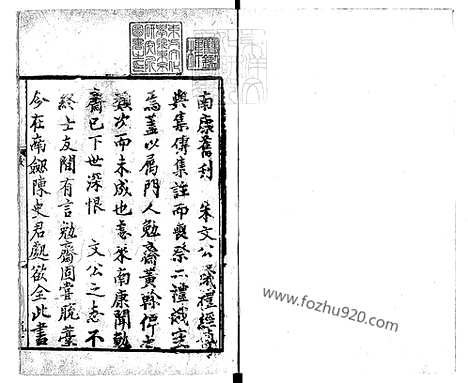 南康舊刋 朱文公儀禮經傳
與集傳集註而喪祭二禮識寔
焉蓋以属門人勉齋黄榦俾之
類次而未成也
 來南康聞勉
齋已下世深恨 文公之志不
終士友間有言勉齋固嘗脱藁
今在南劔陳史君處欲全此書
www.fozhu920.com